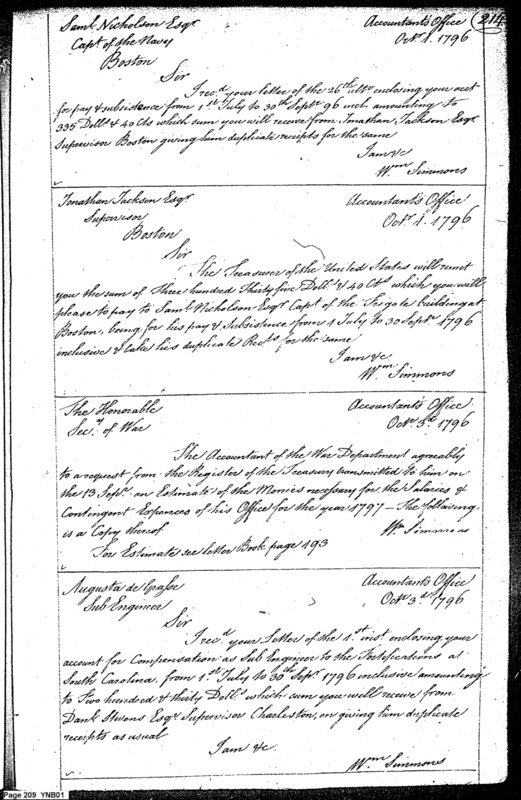 Saml. Nicholson Esqr Accountants Office 214
Capt. of the Navy Octr. 1. 1796
Boston
Sir
I recd. your letter of the 26th ulto. enclosing your acct
for pay & subsistence from 1st July to 30th Septr. 96 incl. amounting to
335 Dolls. & 40 Cts which sum you will receive from Jonathan Jackson Esqr
Supervisor Boston giving him duplicate receipts for the same
I am &c
Wm Simmons
Jonathan Jackson Esqr Accountants Office
Supervisor Octr. 1. 1796
Boston
Sir
The Treasurer of the United States will remit
you the sum of Three hundred Thirty five Dolls. & 40 Cts which you will
please to pay to Saml. Nicholson Esqr Capt. of the Frigate building at
Boston, being for his pay & Subsistence from 1 July to 30 Septr. 1796
inclusive & take his duplicate Rects for the same
I am &c
Wm Simmons
The Honorable Accountants Office
Secy. of War Octr. 3d. 1796
The Accountant of the War Department agreeably
to a request from the Register of the Treasury transmitted to him on
the 13 Septr. an Estimate of the Monies necessary for the Salaries &
Contingent Expences of his Office for the year 1797 — The following
is a Copy thereof Wm Simmons
For Estimate see letter Book page 193
Augusta de Grasse Accountants Office
Sub Engineer Octr 3d. 1796
Sir
I recd. your Letter of the 1st inst. enclosing your
account for Compensation as Sub Engineer to the Fortifications at
South Carolina, from 1st July to 30th Septr. 1796 inclusive amounting
to Two hundred & thirty Dolls which sum you will receive from
Danl Stevens Esqr Supervisor Charleston, on giving him duplicate
receipts as usual
I am &c
Wm Simmons
Page 209 YNB01